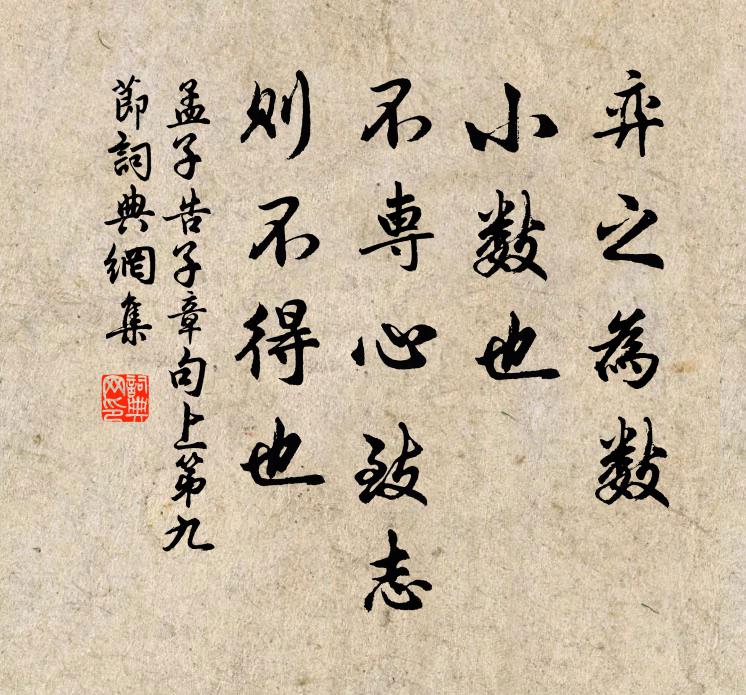 弈之為數
小數也
不專心致志
則不得也
孟子告子章句上第九
節詞典網集
詞典
网印